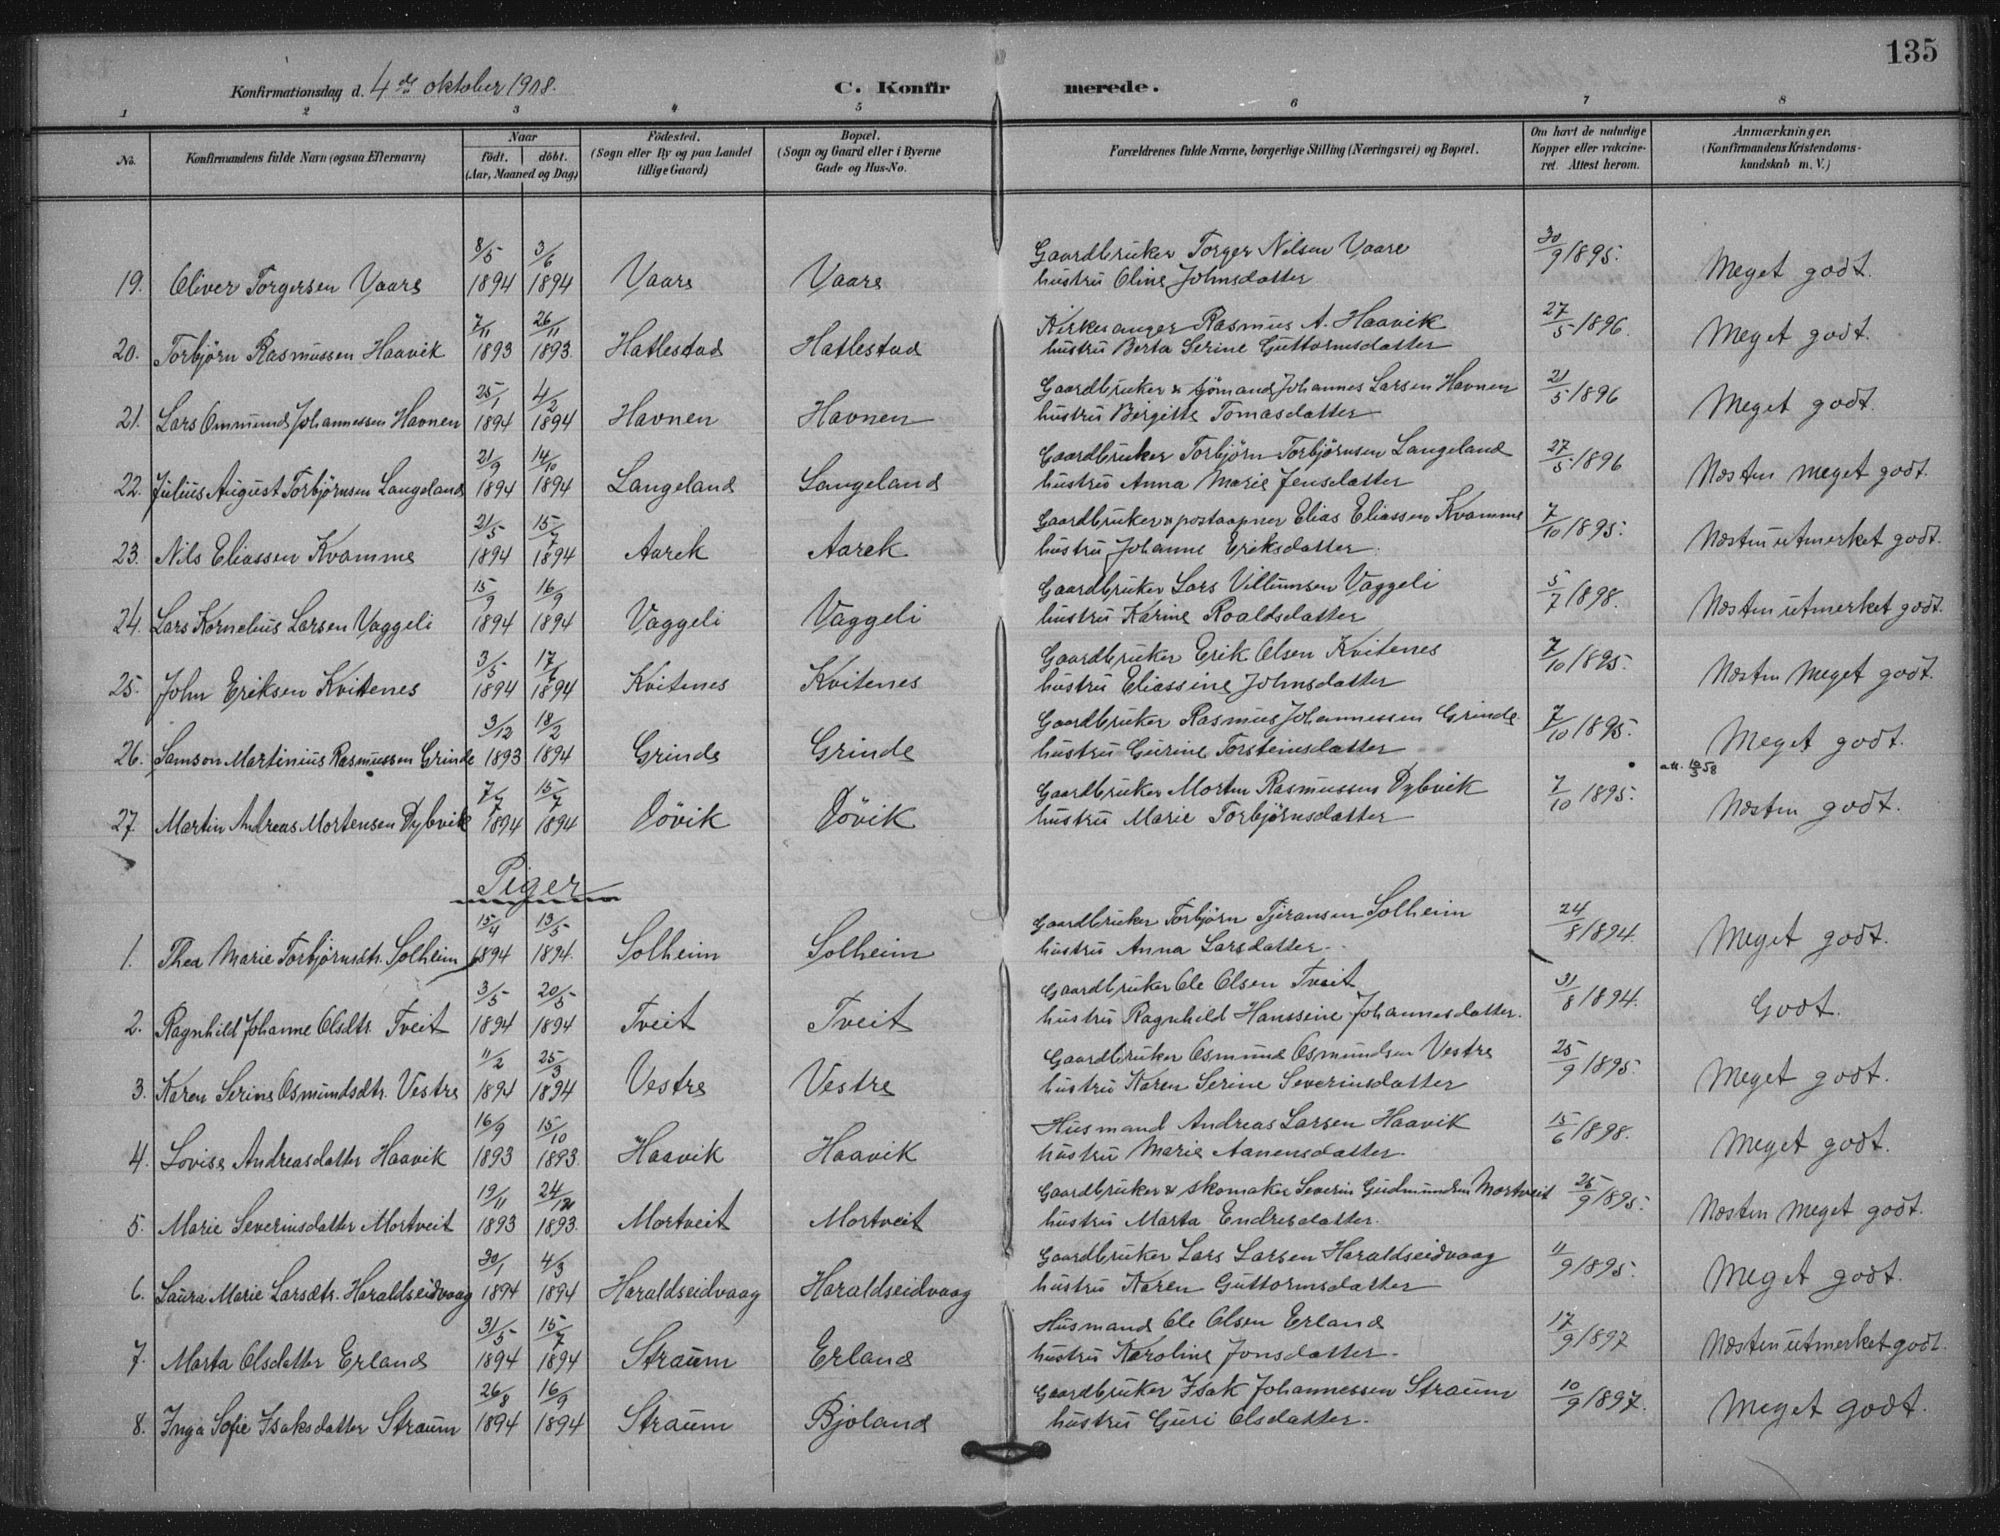 135
Konfirmationsdag d. 4de oktober 1908. C. Konfirmerede.
1 2 3 4 5 6 7 8
No. Konfirmandens fulde Navn (ogsaa Efternavn) Naar født. døbt. (Aar, Maaned og Dag) Fødested. (Sogn eller By og paa Landet tillige Gaard) Bopæl. (Sogn og Gaard eller i Byerne Gade og Hus-No. Forældrenes fulde Navne, borgerlige Stilling (Næringsvei) og Bopæl. Om havt de naturlige Kopper eller vakcineret. Attest herom. Anmærkninger. (Konfirmandens Kristendomskundskab m. V.)
8/5 3/6 Gaardbruker Torger Nilsen Vaare 30/9 1895.
19. Oliver Torgersen Vaare 1894 1894 Vaare Vaare hustru Oline Johnsdatter Meget godt.
7/11 26/11 Kirkesanger Rasmus A. Haavik 27/5 1896.
20. Torbjørn Rasmussen Haavik 1893 1893. Hatlestad Hatlestad hustru Berta Serine Guttormsdatter Meget godt.
25/1 4/2 Gaardbruker & sjømand Johannes Larsen Havnen 21/5 1896
21. Lars Ommund Johannessen Havnen 1894 1894 Havnen Havnen hustru Bergitte Tomasdatter Meget godt.
21/9 14/10 Gaardbruker Torbjørn Torbjørnsen Langeland 27/5 1896
22. Julius August Torbjørnsen Langeland 1894 1894 Langeland Langeland hustru Anna Marie Jensdatter Næsten meget godt.
21/5 15/7 Gaardbruker & postaapner Elias Eliassen Kvamme 7/10 1895.
23. Nils Eliassen Kvamme 1894 1894 Aarek Aarek hustru Johanne Eriksdatter. Næsten utmerket godt.
15/9 16/9 Gaardbruker Lars Villumsen Vaggeli 5/7 1898.
24. Lars Kornelius Larsen Vaggeli 1894 1894 Vaggeli Vaggeli hustru Karine Roaldsdatter Næsten utmerket godt.
3/5 17/6 Gaardbruker Erik Olsen Kvitenes 7/10 1895.
25. John Eriksen Kvitenes 1894 1894 Kvitenes Kvitenes hustru Eliassine Johnsdatter Næsten Meget godt.
3/12 18/2 Gaardbruker Rasmus Johannessen Grinde 7/10 1895.
26. Samson Martinius Rasmussen Grinde 1893 1894 Grinde Grinde hustru Gurine Torsteinsdatter Meget godt.
7/7 15/7 Gaardbruker Morten Rasmussen Dybvik 7/10 1895. att. 10/3 58
27. Martin Andreas Mortensen Dybvik 1894 1894 Døvik Døvik hustru Marie Torbjørnsdatter Næsten godt.
Piger
15/4 13/5 Gaardbruker Torbjørn Tjeransen Solheim 24/8 1894.
1. Thea Marie Torbjørnsdtr. Solheim 1894 1894. Solheim Solheim hustru Anna Larsdatter. Meget godt.
3/5 20/5 Gaardbruker Ole Olsen Tveit 31/8 1894.
2. Ragnhild Johanne Olsdtr. Tveit 1894 1894 Tveit Tveit hustru Ragnhild Hanssine Johannesdatter. Godt.
11/2 25/3 Gaardbruker Osmund Osmundsen Vestre 25/9 1895.
3. Karen Serine Osmundsdtr. Vestre 1894 1894 Vestre Vestre hustru Karen Serine Severinsdatter Meget godt.
16/9 15/10 Husmand Andreas Larsen Haavik 15/6 1898.
4. Lovise Andreasdatter Haavik 1893 1893. Haavik Haavik hustru Marie Aanensdatter. Meget godt.
19/11 24/12 Gaardbruker & skomaker Severin Gudmundsen Mortveit 25/9 1895.
5. Marie Severinsdatter Mortveit 1893 1893. Mortveit Mortveit hustru Marta Endresdatter. Næsten Meget godt.
30/1 4/3 Gaardbruker Lars Larsen Haraldseidvaag 11/9 1895.
6. Laura Marie Larsdtr. Haraldseidvaag 1894 1894 Haraldseidvaag Haraldseidvaag hustru Karen Guttormsdatter Meget godt.
31/5 15/7 Husmand Ole Olsen Erland 17/9 1897
7. Marta Olsdatter Erland 1894 1894 Straum Erland hustru Karoline Jonsdatter. Næsten utmerket godt.
26/8 16/9 Gaardbruker Isak Johannessen Straum 10/9 1897.
8. Inga Sofie Isaksdatter Straum 1894 1894 Straum Bjoland hustru Guri Olsdatter. Meget godt.